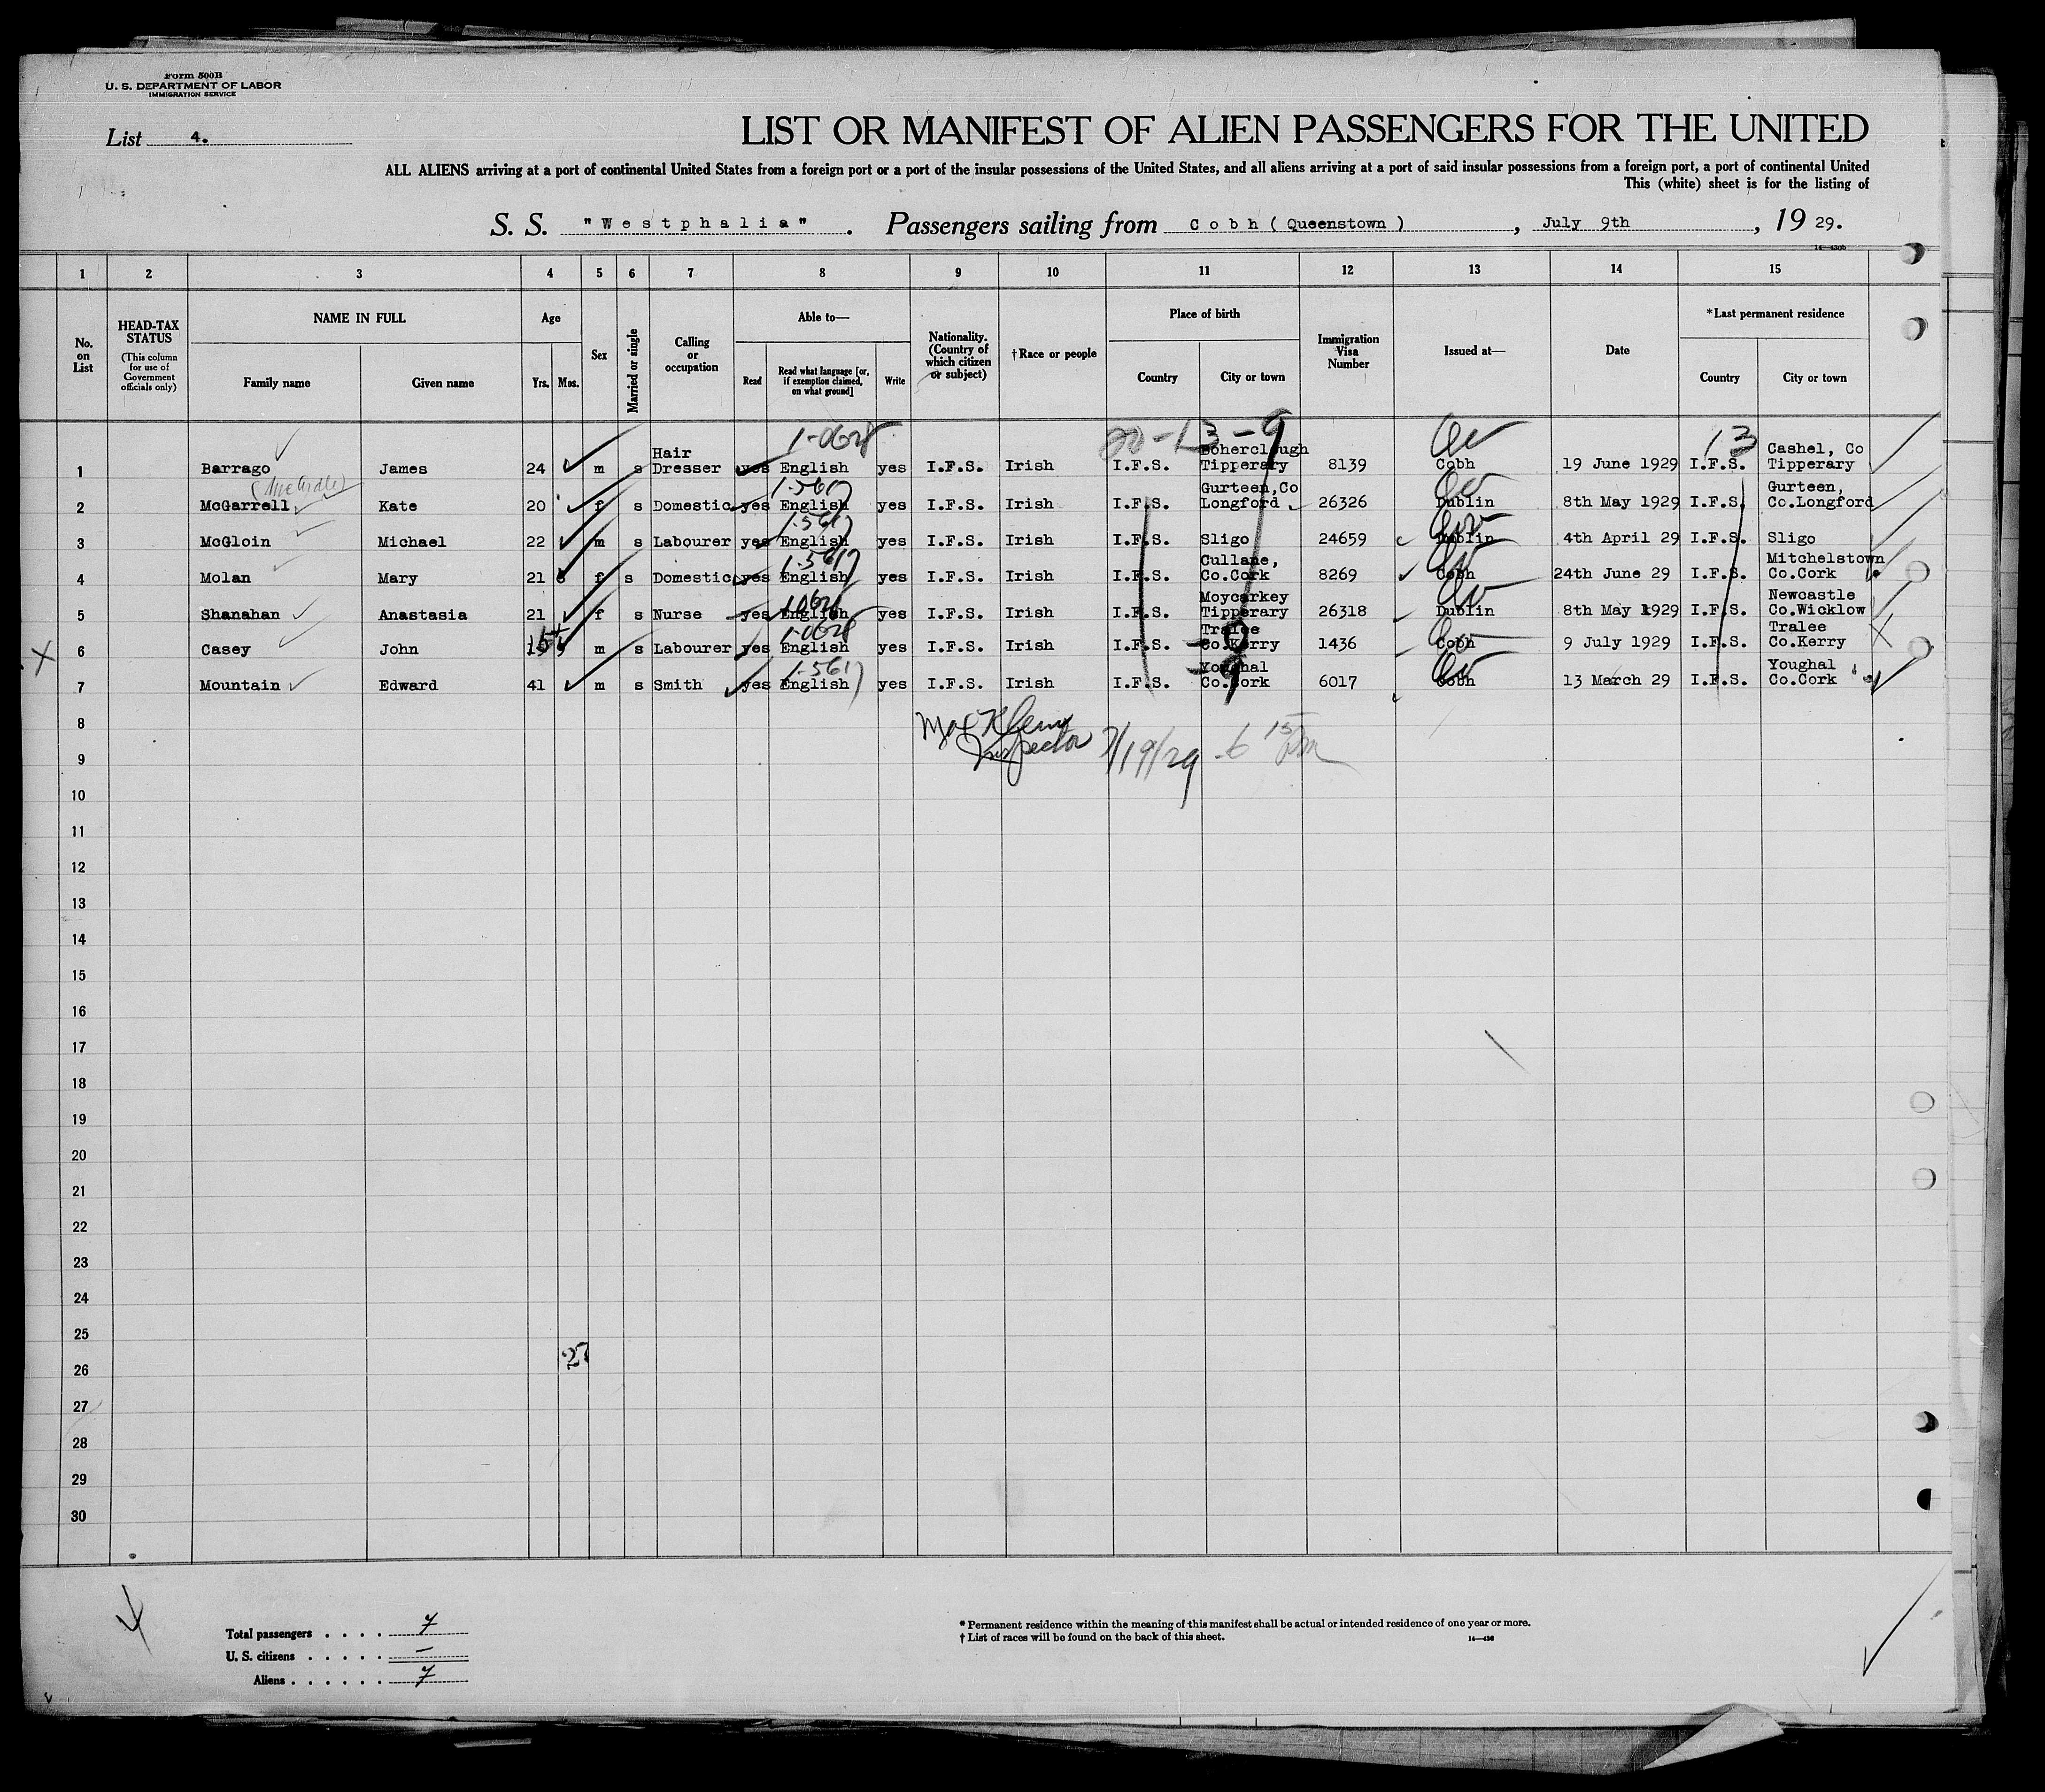 Form 500B
U. S. DEPARTMENT OF LABOR
IMMIGRATION SERVICE
List 4.
LIST OR MANIFEST OF ALIEN PASSENGERS FOR THE UNITED
ALL ALIENS arriving at a port of continental United States from a foreign port or a port of the insular possessions of the United States, and all aliens arriving at a port of said insular possessions from a foreign port, a port of continental United
This (white) sheet is for the listing of
S. S. "Westphalia". Passengers sailing from Cobh (Queenstown), July 9th, 19 29.
14—430b
1 2 3 4 5 6 7 8 9 10 11 12 13 14 15
No. on List
HEAD-TAX STATUS
(This column for use of Government officials only)
NAME IN FULL
Family name Given name
Age
Yrs. Mos.
Sex
Married or single
Calling or occupation
Able to—
Read
Read what language [or, if exemption claimed, on what ground]
Write
Nationality. (Country of which citizen or subject)
†Race or people
Place of birth
Country City or town
Immigration Visa Number
Issued at—
Date
*Last permanent residence
Country City or town
1-0628 20-13-9 13
1 Barrago James 24 m s Hair Dresser yes English yes I.F.S. Irish I.F.S. Boherclough Tipperary 8139 Cobh 19 June 1929 I.F.S. Cashel, Co Tipperary
1-5617
2 McGarrell Kate 20 f s Domestic yes English yes I.F.S. Irish I.F.S. Gurteen,Co Longford 26326 Dublin 8th May 1929 I.F.S. Gurteen, Co.Longford
1-5617
3 McGloin Michael 22 m s Labourer yes English yes I.F.S. Irish I.F.S. Sligo 24659 Dublin 4th April 29 I.F.S. Sligo
1-5617
4 Molan Mary 21 f s Domestic yes English yes I.F.S. Irish I.F.S. Cullane, Co.Cork 8269 Cobh 24th June 29 I.F.S. Mitchelstown Co.Cork
5 Shanahan Anastasia 21 f s Nurse yes English yes I.F.S. Irish I.F.S. Moycarkey Tipperary 26318 Dublin 8th May 1929 I.F.S. Newcastle Co.Wicklow
1-0628
X 6 Casey John m s Labourer yes English yes I.F.S. Irish I.F.S. Tralee Co.Kerry 1436 Cobh 9 July 1929 I.F.S. Tralee Co.Kerry X
1-5617
7 Mountain Edward 41 m s Smith yes English yes I.F.S. Irish I.F.S. Youghal Co.Cork 6017 Cobh 13 March 29 I.F.S. Youghal Co.Cork
8
Inspector 7/19/29 6 15 pm
9
10
11
12
13
14
15
16
17
18
19
20
21
22
23
24
25
27
26
27
28
29
30
Total passengers . . . . 7
U. S. citizens . . . . . —
Aliens . . . . . . 7
* Permanent residence within the meaning of this manifest shall be actual or intended residence of one year or more.
† List of races will be found on the back of this sheet.
14—430